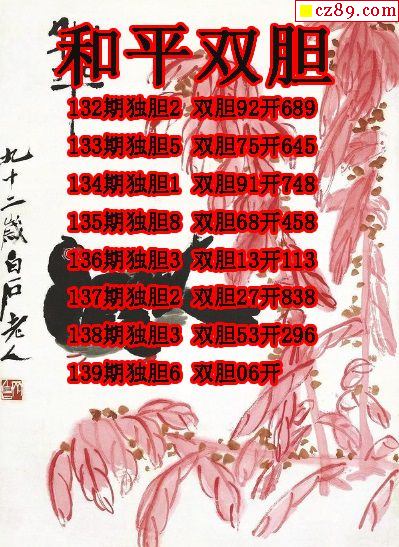 cz89.com
和平双胆
132期独胆2 双胆92开689
133期独胆5 双胆75开645
134期独胆1 双胆91开748
135期独胆8 双胆68开458
136期独胆3 双胆13开113
137期独胆2 双胆27开838
138期独胆3 双胆53开296
139期独胆6 双胆06开
九十二歲白石老人